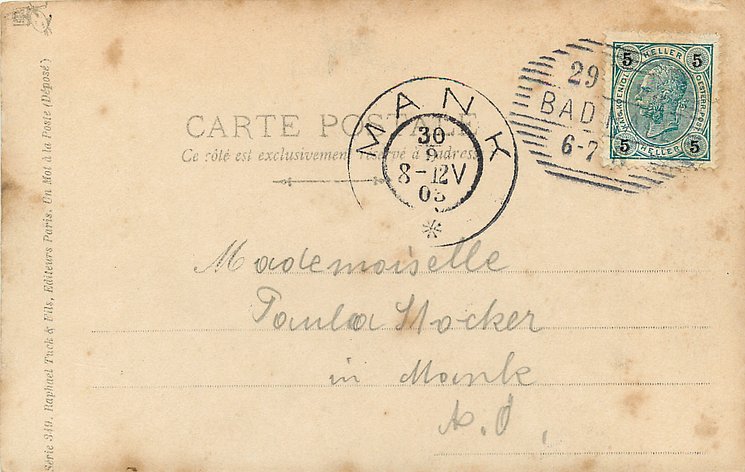 CARTE POSTALE
Ce côté est exclusivement réservé à l'adresse
MANK
30
9
8-12V
03
29
BAD
6-7
5 HELLER 5
5 HELLER 5
Mademoiselle
Paula Stocker
in Mank
N. Ö.
Série 349. Raphael Tuck & Fils, Editeurs Paris. Un Mot à la Poste (Déposé)